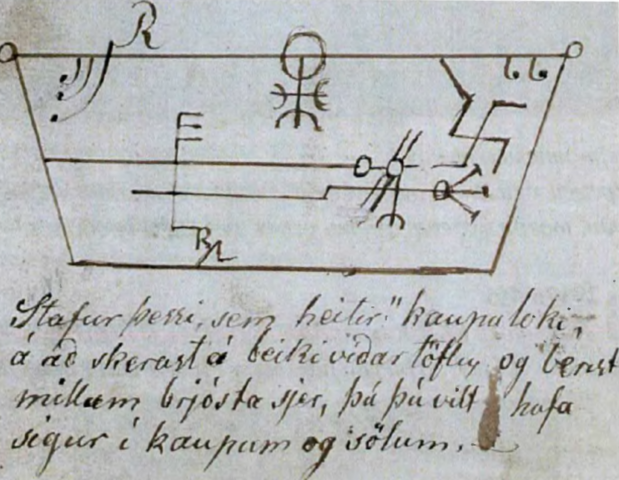 R
Stafur þessi, sem heitir "kaupaloki,
á að skerast á beikividar töflu og berast
millum brjósta sjer, þá þú vilt hafa
sigur i kaupum og sölum.